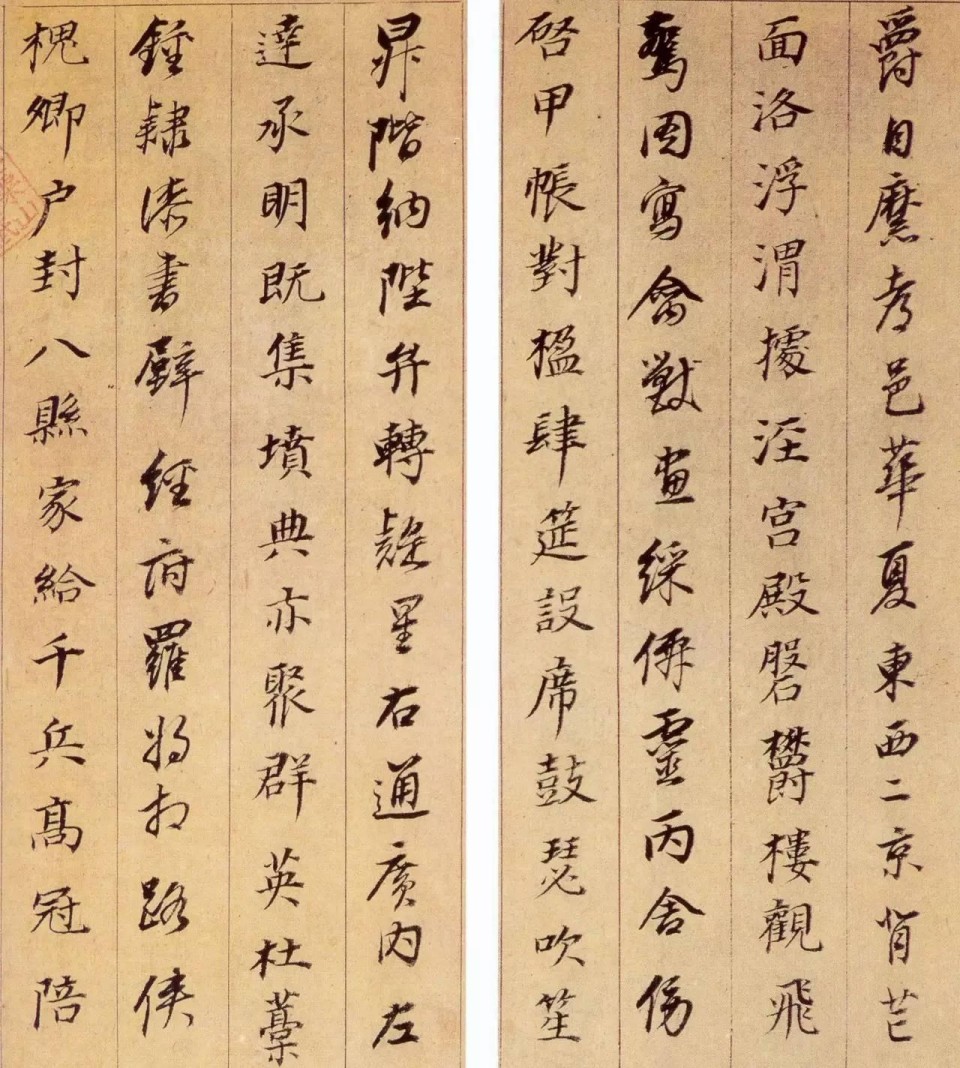 爵自縻都邑華夏東西二京背芒
面洛浮渭據涇宮殿磐欝樓觀飛
驚圖寫禽獸畫綵僊靈丙舍傍
啓甲帳對楹肆筵設席鼓瑟吹笙
昇階納陛弁轉疑星右通廣內左
達承明既集墳典亦聚群英杜藁
鍾隸漆書壁經府羅將相路俠
槐卿户封八縣家給千兵高冠陪